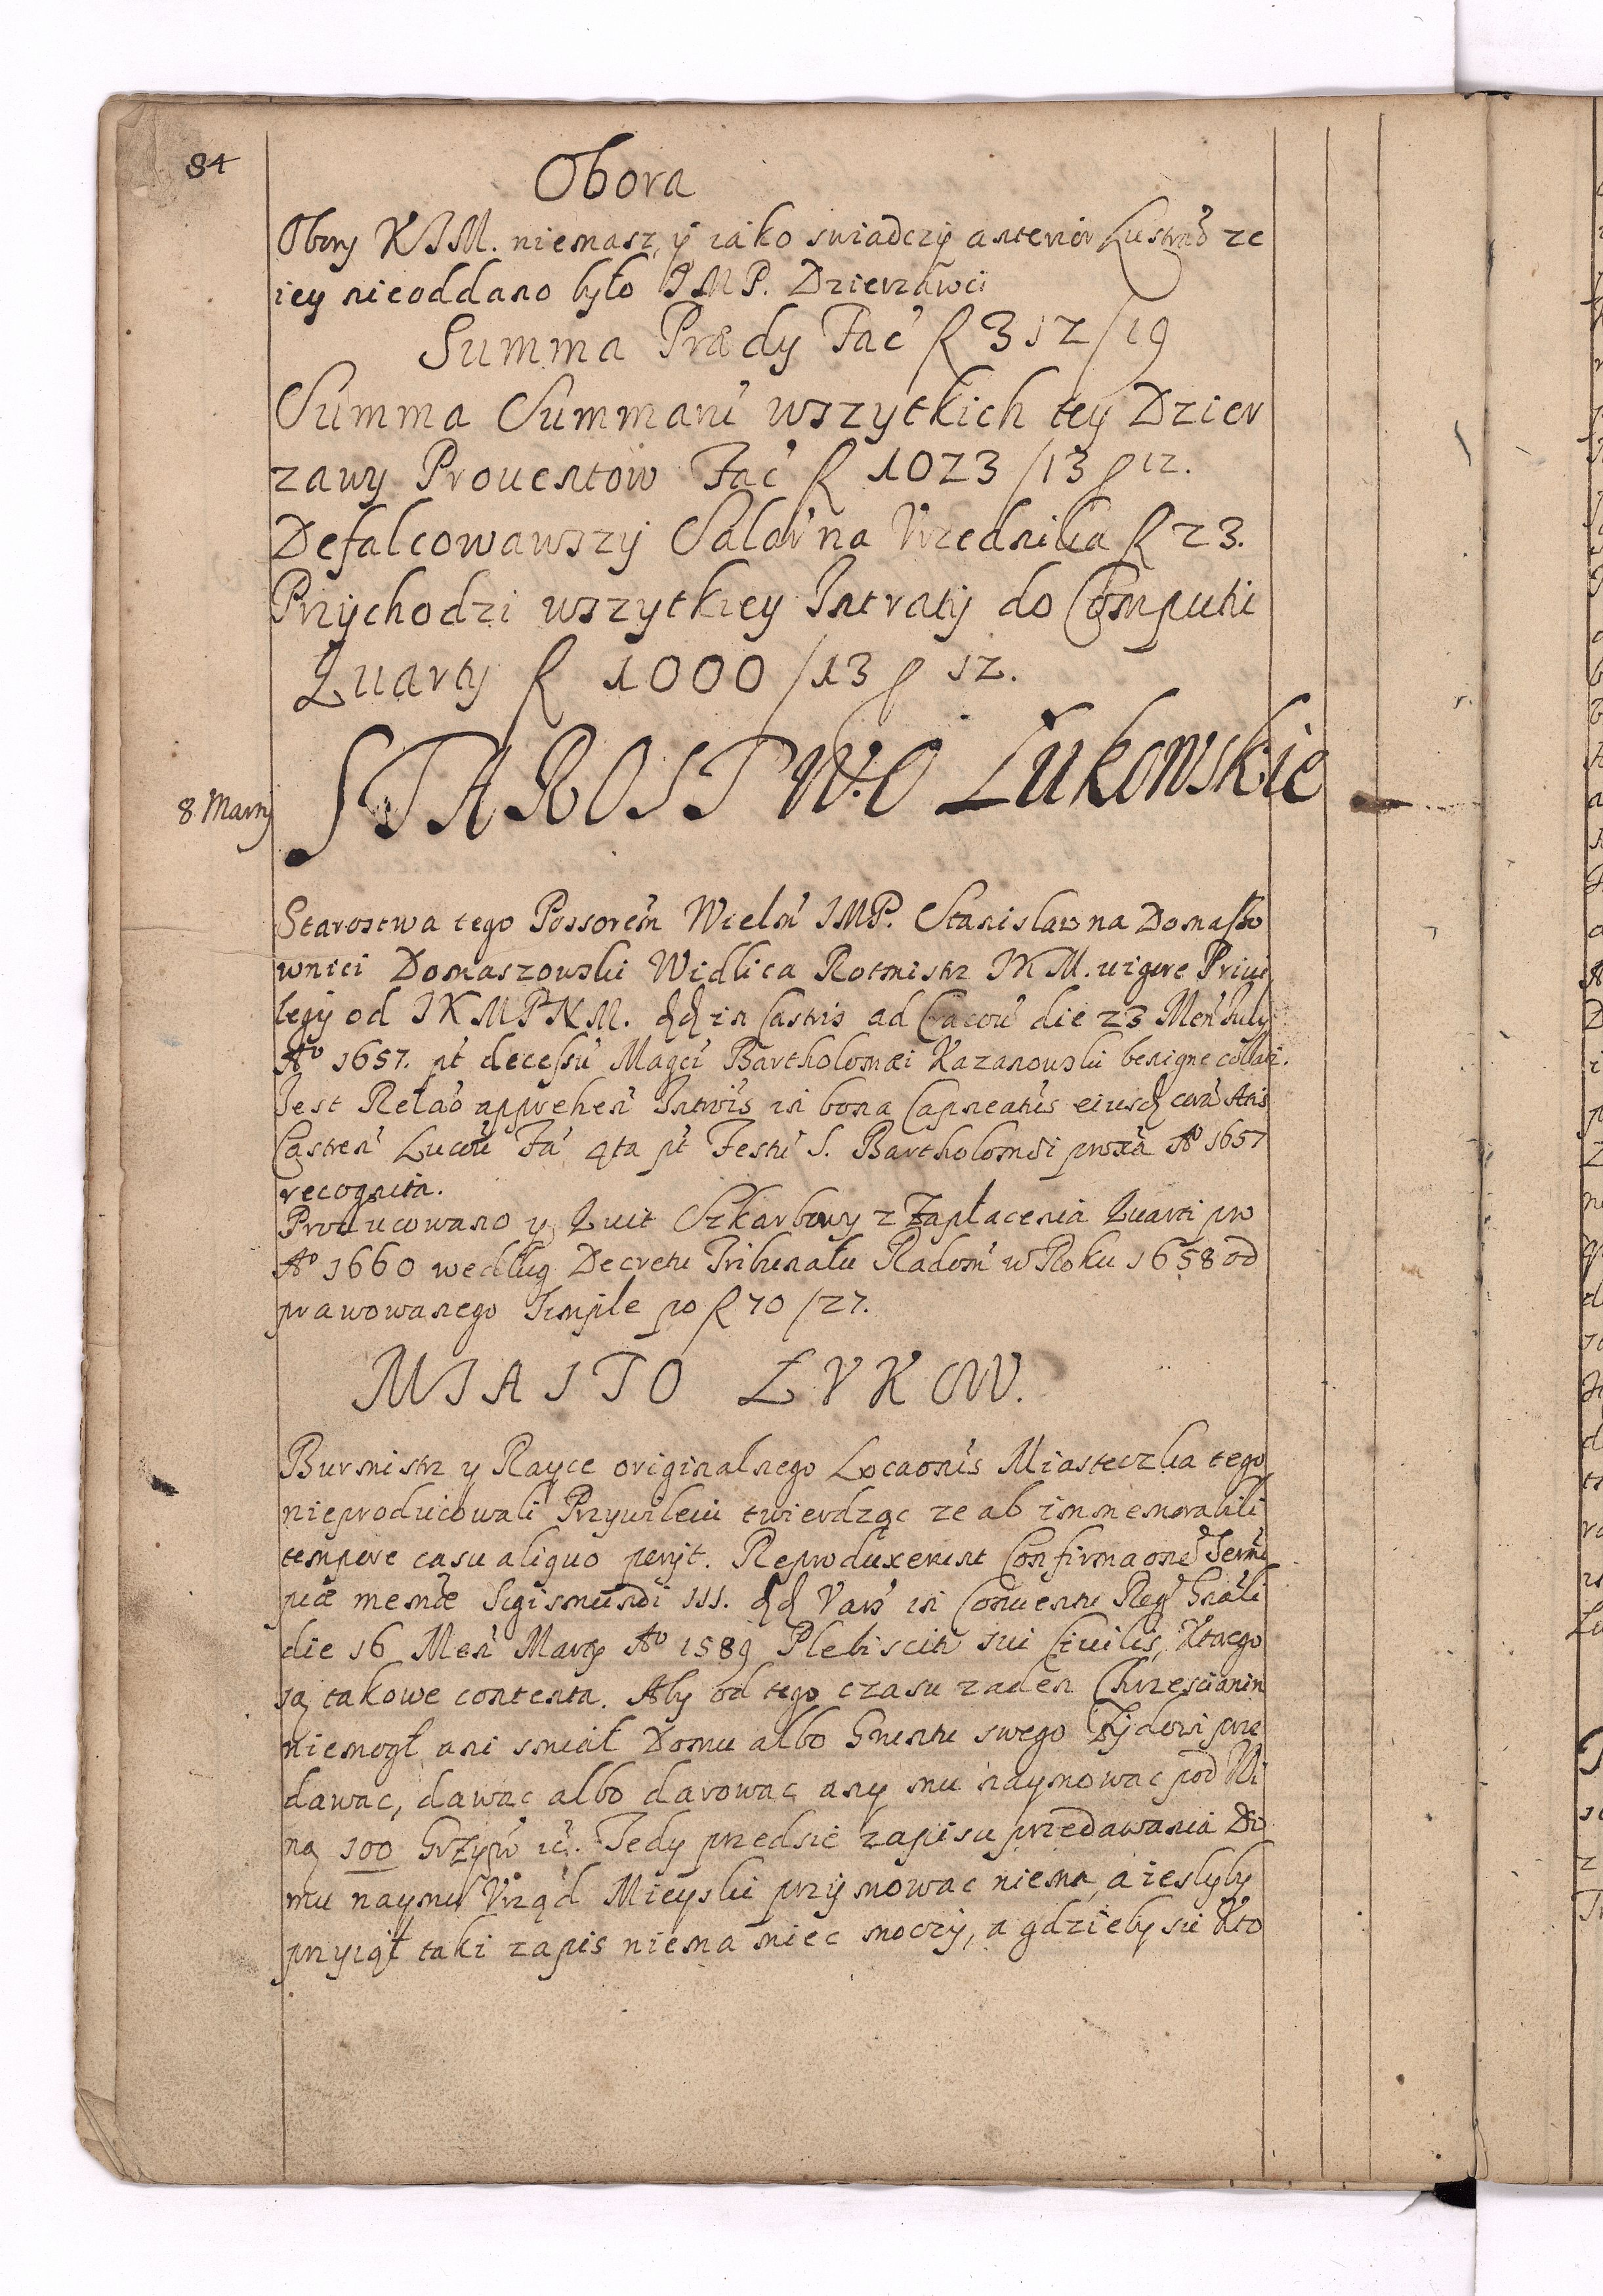 84
Obora
Obory KJM. niemasz, y iako swiadczy anterior Lustrao ze
iey nieoddano było JMP. Dzierzawci
Summa Prædy Fac f 312/19
Summa Summaru wszytkich tey Dzier
zawy Prouentow Fac f 1023/13 ρ 12.
Defalcowawszy Salar na Vrzednika f 23.
Przychodzi wszytkiey Intraty do Computu
Quarty f 1000/13 ρ 12.
8 Marty
STAROSTWO Łukowskie
Starostwa tego Possorem Wielm JMP. Stanislaw na Domaszo
wnici Domaszowski Widlica Rotmistrz JKM. uigore Priui
legy od JKMPNM. dd in Castris ad Cracou die 23 Men July
Aº 1657. pt decessu Magci Bartholomæi Kazanowski benigne collati.
Jest Relao apprehen Intrōis in bona Capneatus eiusd cora Actis
Castren Lucou Fa 4ta pt Festu S. Bartholomæi proxa Aº 1657
recognita.
Producowano y Quit Szkarbowy z Zapłacenia Quarti pro
Aº 1660 według Decretu Tribunału Radom w Roku 1658 od
prawowanego Simple po f 70/27.
MIASTO ŁVKOW.
Burmistrz y Rayce originalnego Locaonis Miasteczka tego
nieproducowali Przywileiu twierdząc ze ab immemorabili
tempore casu aliquo peryt. Reproduxerunt Confirmaone Sermi
piæ memæ Sigismundi III. dd Vars in Conuentu Reg Gnali
die 16 Men Marty Aº 1589 Plebisciti sui Ciuilis, Ktorego
są takowe contenta. Aby od tego czasu zaden Chrzescianin
niemogł ani smiał Domu albo Gruntu swego Zydowi prze
dawac, dawac albo darowac any mu naymowac pod Wi
ną 100 Grzyw ic. Tedy przedsie zapisu przedawania Do
mu naymu Vrząd Mieyski przymowac niema, a ieslyby
przyiął taki zapis niema miec moczy, a gdzieby sie Kto